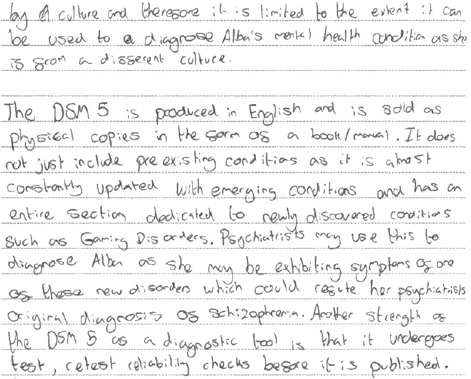 by a culture and therefore it is limited to the extent it can
be used to a diagnose Alba's mental health condition as she
is from a different culture.
The DSM 5 is produced in English and is sold as
physical copies in the form of a book/manual. It does
not just include pre existing conditions as it is almost
constantly updated with emerging conditions and has an
entire section dedicated to newly discovered conditions
such as Gaming Disorders. Psychiatrists may use this to
diagnose Alba as she may be exhibiting symptoms of one
of these new disorders which could refute her psychiatrists
original diagnosis of schizophrenia. Another strength of
the DSM 5 as a diagnostic tool is that it undergoes
test, retest reliability checks before it is published.